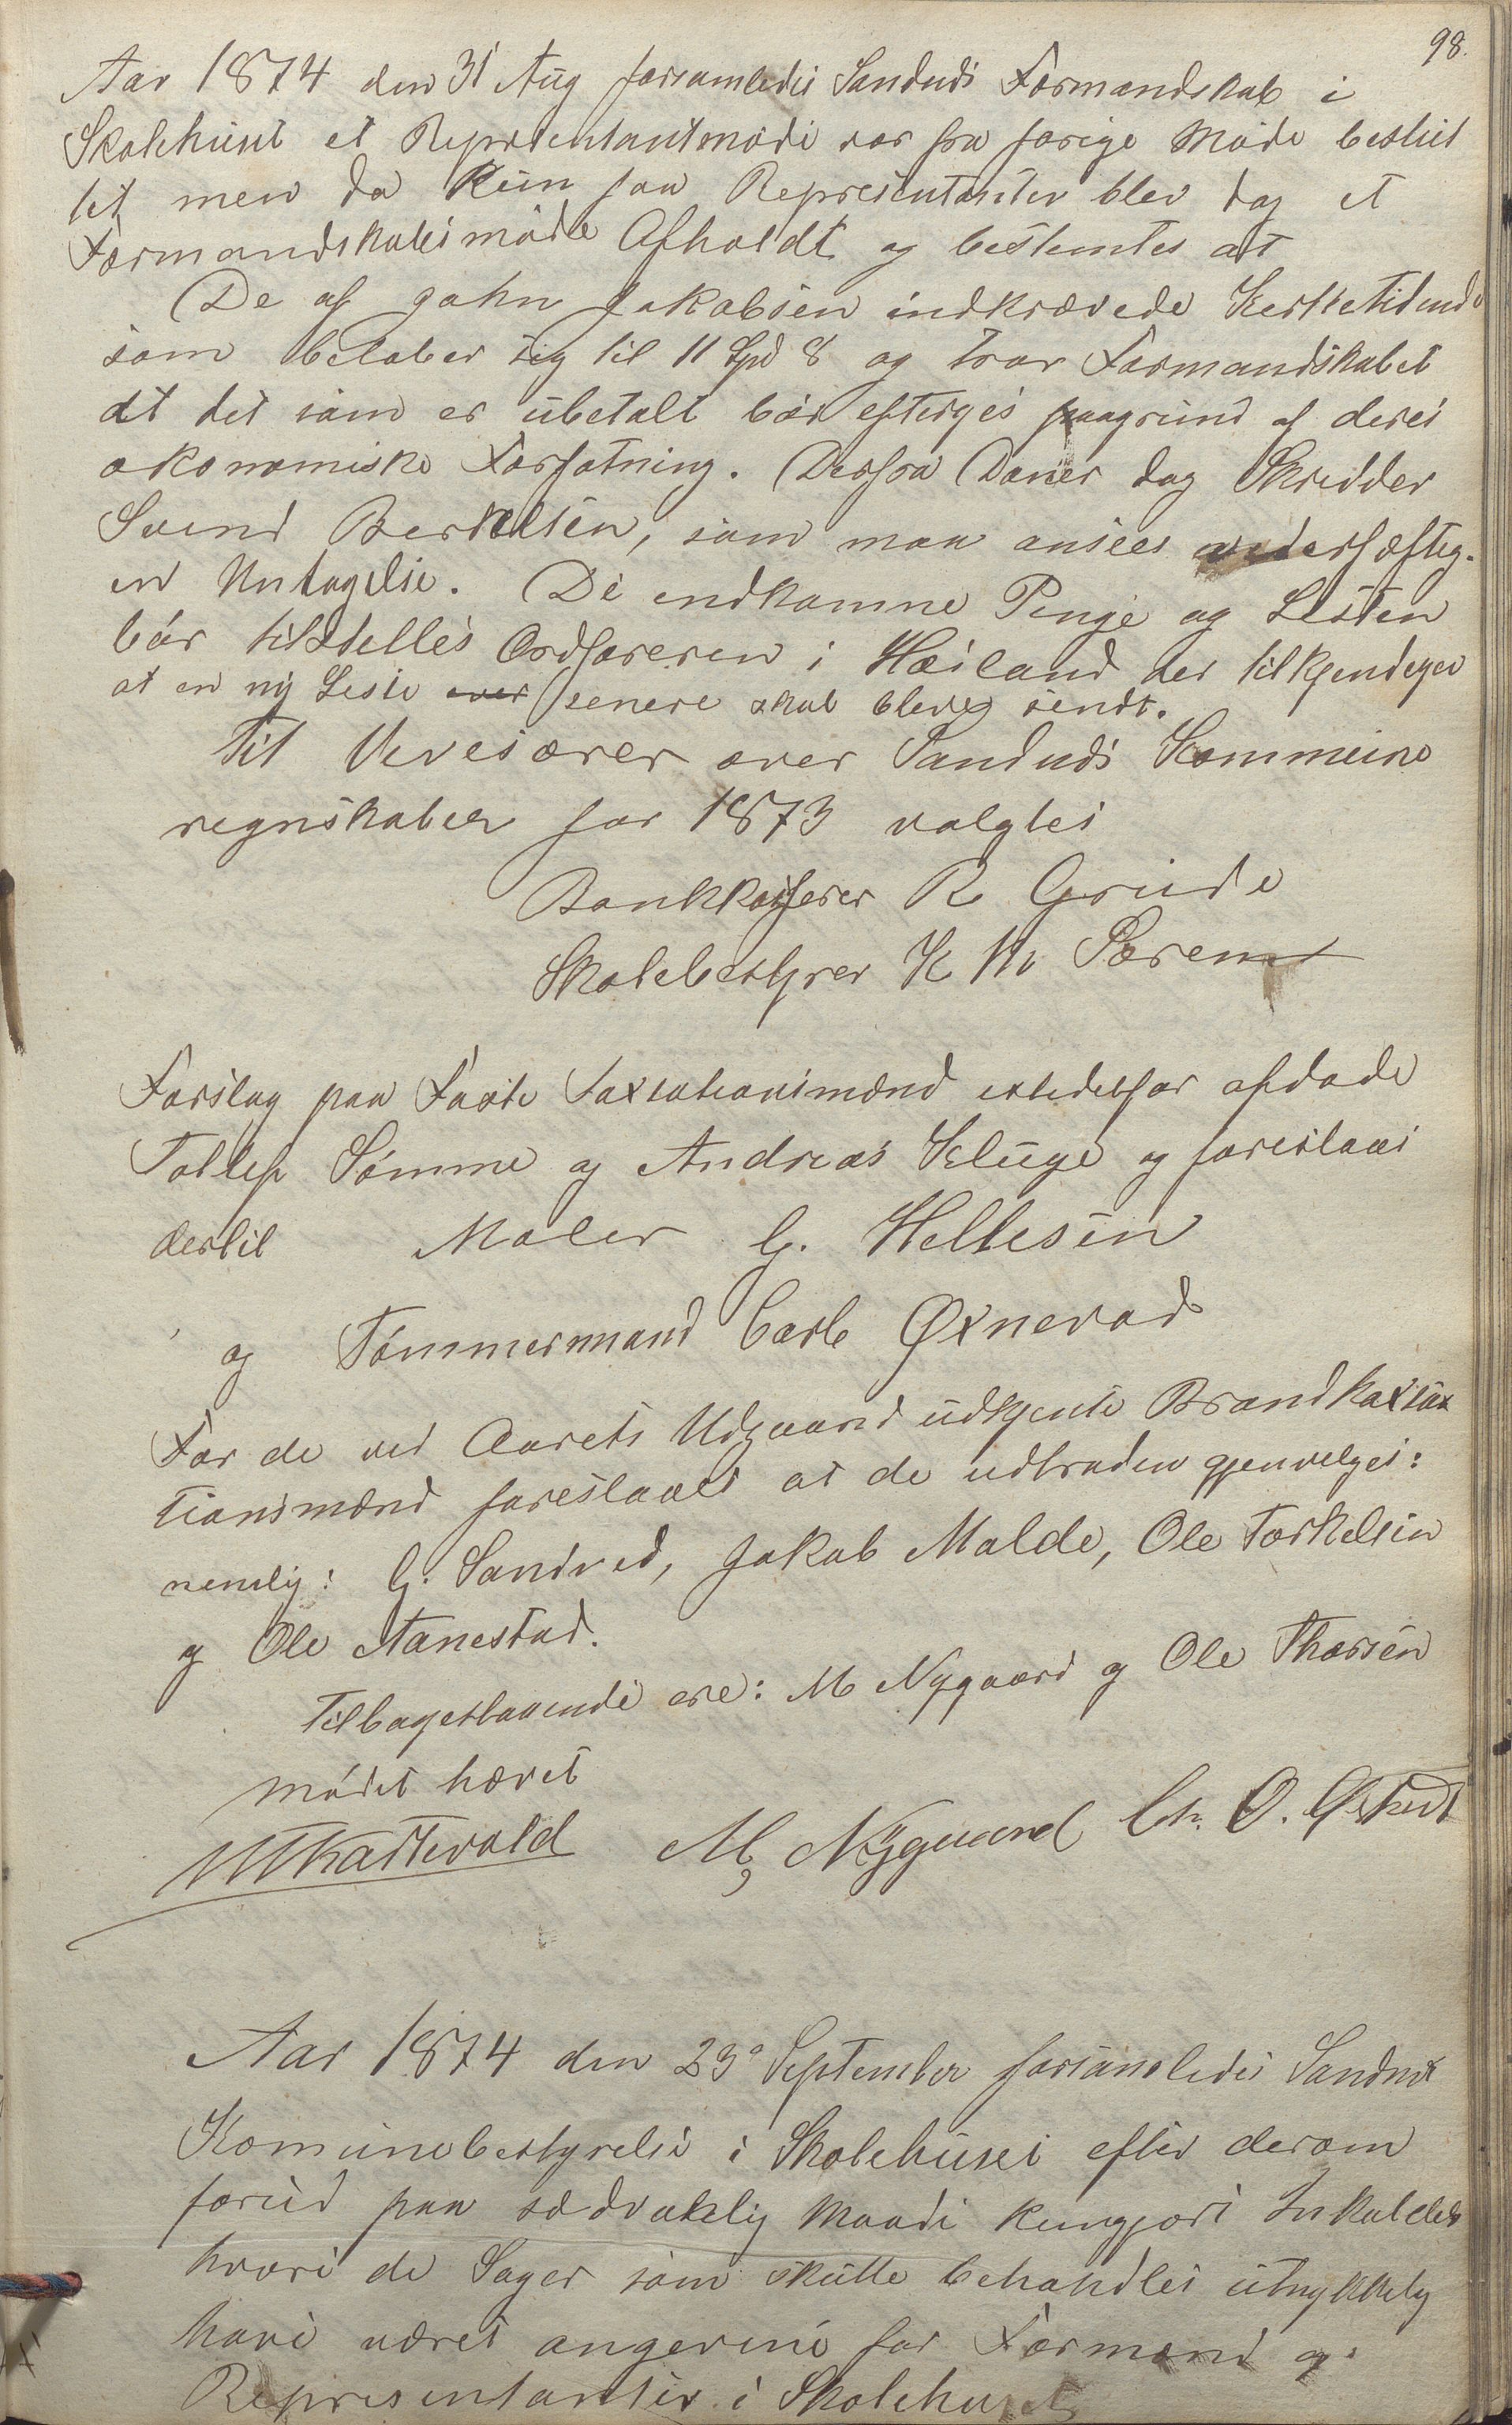 98.
Aar 1874 den 31 Aug forsamledes Sandnes Formandskab i
Skolehuset et Reprsentantmøde var fra forige Møde beslut
tet, men da kun faa Representanter blev dog et
Formandskabsmøde Afholdt og bestemtes at
De af John Jakobsen indkrævede
som beløber sig til 11 Spd 8 og tror Formandskabet
at det som er ubetalt bør eftergis paagrund af deres
økonomiske Forfatning. Derfra Danner dog Skredder
Svend Bertelsen, som man ansees vederhæftig.
en Untagelse. De indkomne Penge og Listen
bør tilstilles Ordføreren i Høiland der tilkjendegev
at en ny Liste senere skal blive sendt.
Til Revisører over Sandnes Kommune
regnskaber for 1873 valgtes
Bankkasserer R Grude
Skolebestyrer K M Søren
Forslag paa Faste Taxtationsmænd istedetfor afdøde
Tollef Sømme og Andreas Kluge og foreslaaes
dertil Maler G. Hellesen
og Tømmermand Carl Øxnevad
For de ved Aarets Udgaand udkjente Brandkaxtax
tionsmænd foreslaaes at de udtraden gjenvelges:
nemlig: G. Sandved, Jakob Malde, Ole Torkelsen
og Ole Aanestad.
Tilbagestaaende ere: M Nygaard og Ole Thorsen
Mødet hævet
M Nygaard Ch. O.
Aar 1874 den 23de September forsamledes Sandnes
Komunebestyrelse i Skolehuset efter derom
forud paa sædvanlig Maade kungjort
hvori de Sager som skulle behandles utrykkelig
have været angevene for Formænd og
Representanter i Skolehuset